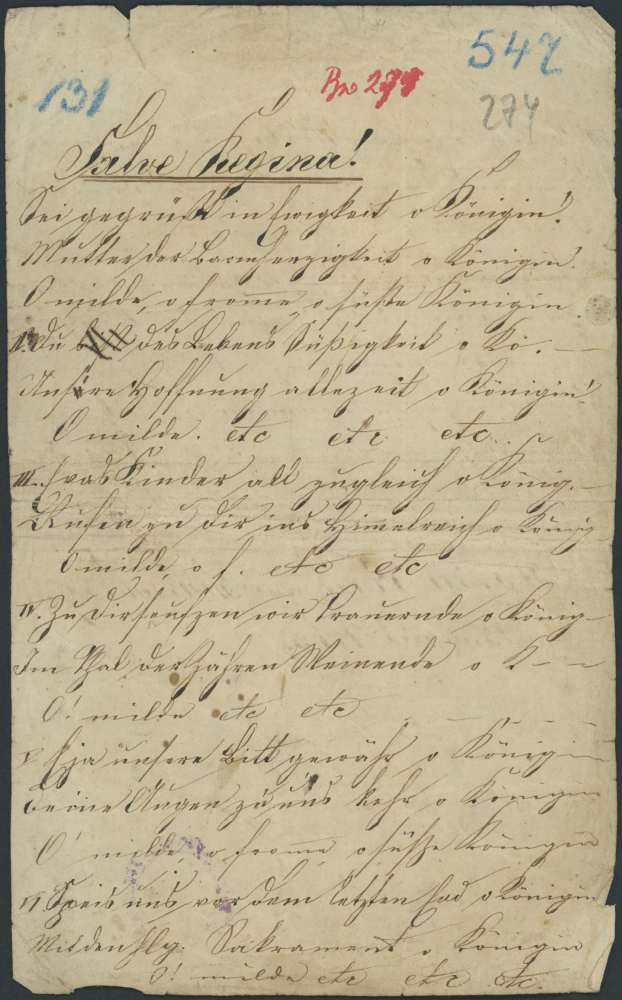 131
Br 274
547
274
Salve Regina!
Sei gegrüßt in Ewigkeit o Königin!
Mutter der Barmherzigkeit o Königin.
O milde, o fromme, o süße Königin
II. Du des Lebens Süßigkeit o Kö. —
Unsere Hoffnung allezeit o Königin!
O milde. etc etc etc..
III. Evas Kinder all zugleich o König. –
Rufen zu Dir ins Himmelreich o König
O milde, o f. etc etc
IV. Zu Dir seufzen wir Trauernde o König –
Im Thal der Zähren Weinende o K – –
O! milde etc etc
V Eja unsere Bitt gewähr o Königin
deine Augen zu uns kehr o Königin
O! milde, o fromme, o süße Königin
VI Speis uns vor dem letzten End o Königin
Mit den hlg. Sakrament o Königin
O! milde etc etc etc.